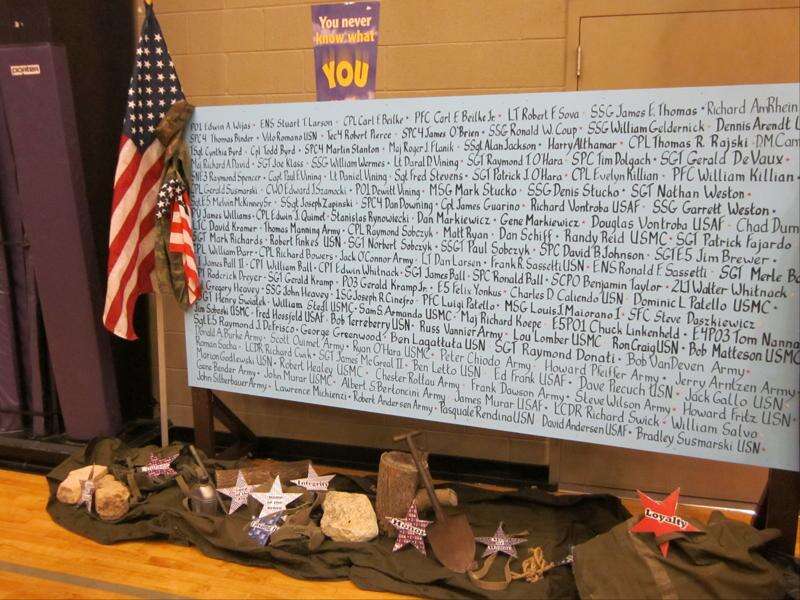 PORTER
You never
know what
YOU
PO1 Edwin A Wijas - ENS Stuart T Larson - CPL Carl F Beilke - PFC Carl E Beilke Jr - LT Robert F Sova - SSG James E. Thomas • Richard AmRhein
SPC4 Thomas Pinder • Vito Romano USN • Tec4 Robert Pierce • SPC4 James O'Brien • SSG Ronald W. Coup • SSG William Geldernick • Dennis Arendt
1Sgt Cynthia Byrd • Cpl Todd Byrd • SPC4 Martin Stanton • Maj Roger J Flanik • SSgt Alan Jackson • Harry Althamar • CPL Thomas R. Rajski •
Maj Richard A David • SGT Joe Klass • SSG William Wermes • Lt Daral D. Vining • SGT Raymond T. O'Hara • SPC Tim Dolgach • SGT Gerald DeVaux •
Raymond Spencer • Capt Paul F Vining • Lt Daniel Vining • Sgt Fred Stevens • SGT Patrick J. O'Hara • CPL Evelyn Killian • PFC William Killian •
CPL Gerald Susmarski • CWO Edward J Stamocki • PO1 Dewitt Vining • MSG Mark Stucko • SSG Denis Stucko • SGT Nathan Weston •
SgtE5 Melvin McKinney Sr • SSgt Joseph Zapinski • SPC4 Dan Downing • Cpl James Guarino • Richard Vontroba USAF • SSG Garrett Weston •
James Williams • CPL Edwin J. Quinet • Stanislas Rynowiecki • Dan Markiewicz • Gene Markiewicz • Douglas Vontroba USAF • Chad
LTC David Kramer • Thomas Manning Army • CPL Raymond Sobczyk • Matt Ryan • Dan Schiff • Randy Reid USMC • SGT Patrick Fajardo
SGT Mark Richards • Robert Finkes USN • SGT Norbert Sobczyk • SSGT Paul Sobczyk • SPC David B Johnson • SGTE5 Jim Brewer •
William Barr • CPL Richard Bowers • Jack O'Connor Army • LT Dan Larsen • Frank R. Sassetti USN • ENS Ronald F Sassetti • SGT Merle
James Ball II • CPT William Ball • CPT Edwin Whitnack • SGT James Ball • SPC Ronald Ball • SCPO Benjamin Taylor • 2LT Walter Whitnack •
Roderick Dreyer • SGT Gerald Kramp • PO3 Gerald Kramp Jr • E5 Felix Yonkus • Charles D Caliendo USN • Dominic L Patello USMC •
Gregory Heavey • SSG John Heavey • 1SG Joseph R. Cinefro • PFC Luigi Patello • MSG Louis J Maiorano I • SFC Steve Daszkiewicz
SGT Henry Swialek • William Stedl USMC • Sam S. Armando USMC • Maj Richard Koepe • E5PO1 Chuck Linkenheld • E4PO3 Tom
Jim Soboski USMC • Fred Hossfeld USAF • Bob Terreberry USN • Russ Vannier Army • Lou Lomber USMC • Ron Craig USN • Bob Matteson USMC
SgtE5 Raymond J. DeFrisco • George Greenwood • Ben Lagattuta USN • SGT Raymond Donati • Bob VanDeven Army •
Donald A. Burke Army • Scott Quimet Army • Ryan O'Hara USMC • Peter Chiodo Army • Howard Pfeiffer Army • Jerry Arntzen Army
Romain Socha • LCDR Richard Cwik • SGT James McGreal II • Ben Letto USN • Ed Frank USAF • Dave Piecuch USN • Jack Gallo USN •
Marion Godlewski USN • Robert Healey USMC • Chester Rollau Army • Frank Dawson Army • Steve Wilson Army • Howard Fritz USN •
Gene Bender Army • John Murar USMC • Albert S Bertoncini Army • James Murar USAF • LCDR Richard Swick • William Salvo
John Silberbauer Army • Lawrence Michienzi • Robert Andersen Army • Pasquale Rendina USN • David Andersen USAF • Bradley Susmarski USN •
Integrity
Home
of the
Brave
Honor
Loyalty